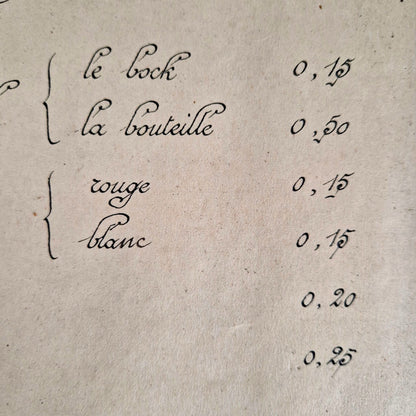 le bock 0,15
la bouteille 0,50
rouge 0,15
blanc 0,15
0,20
0,25